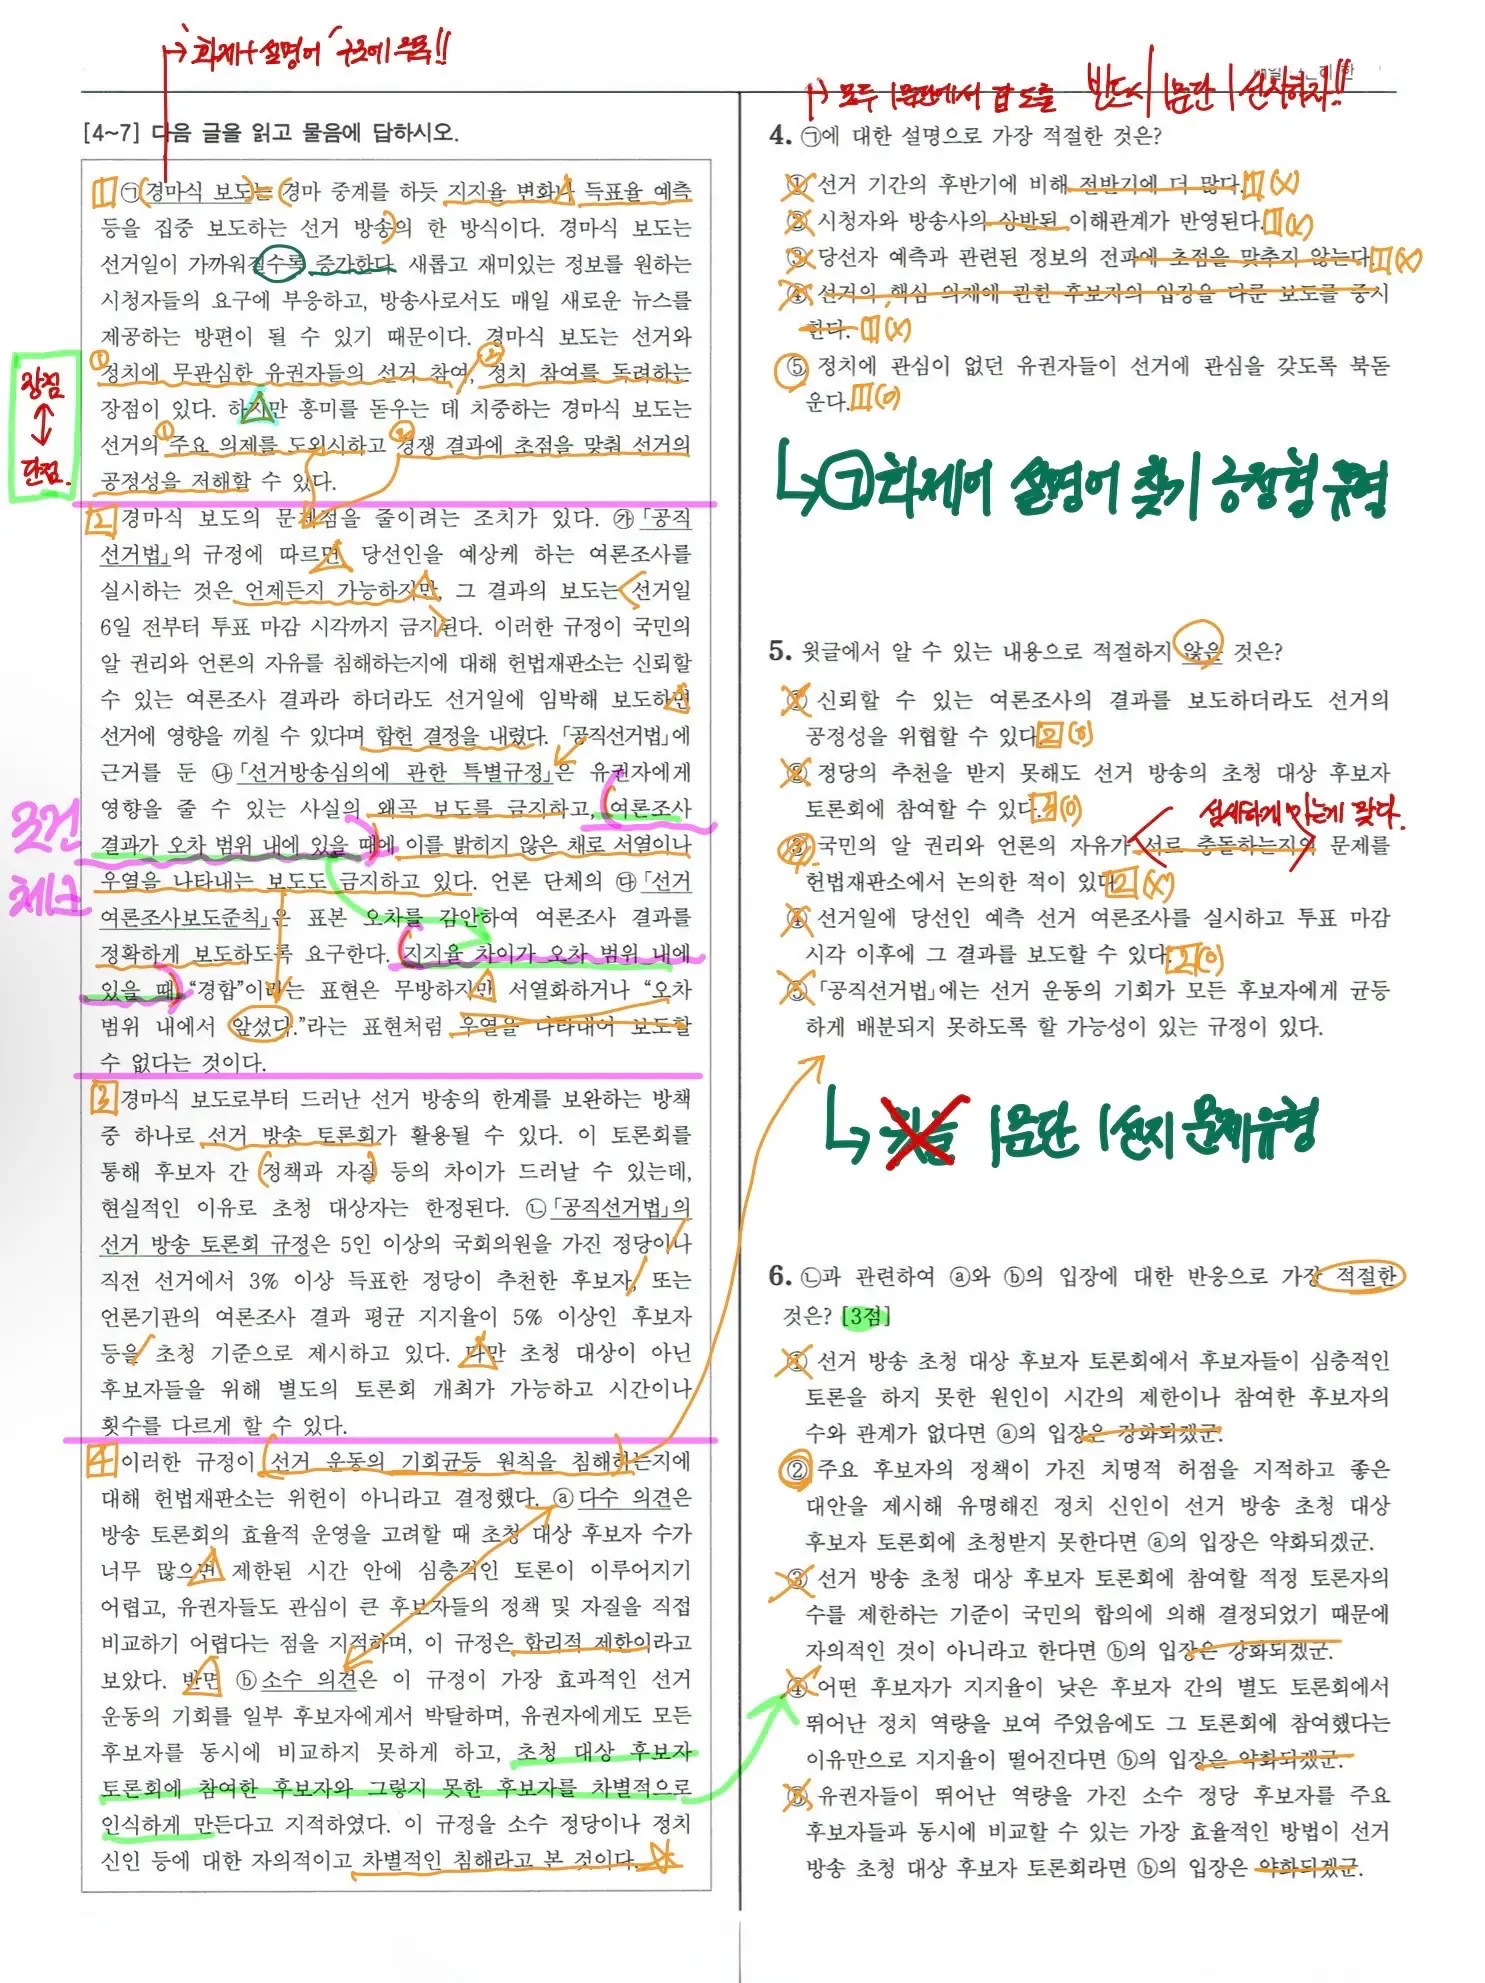 → 화제+설명어 구조에 주목!!
[4~7] 다음 글을 읽고 물음에 답하시오.
1 ㉠경마식 보도는 = 경마 중계를 하듯 지지율 변화나 득표율 예측
등을 집중 보도하는 선거 방송의 한 방식이다. 경마식 보도는
선거일이 가까워질수록 증가한다. 새롭고 재미있는 정보를 원하는
시청자들의 요구에 부응하고, 방송사로서도 매일 새로운 뉴스를
제공하는 방편이 될 수 있기 때문이다. 경마식 보도는 선거와
① ②
정치에 무관심한 유권자들의 선거 참여, 정치 참여를 독려하는
장점이 있다. 하지만 흥미를 돋우는 데 치중하는 경마식 보도는
① ②
선거의 주요 의제를 도외시하고 경쟁 결과에 초점을 맞춰 선거의
공정성을 저해할 수 있다.
장점
↕
단점.
2 경마식 보도의 문제점을 줄이려는 조치가 있다. ㉮「공직
선거법」의 규정에 따르면 당선인을 예상케 하는 여론조사를
실시하는 것은 언제든지 가능하지만, 그 결과의 보도는 선거일
6일 전부터 투표 마감 시각까지 금지된다. 이러한 규정이 국민의
알 권리와 언론의 자유를 침해하는지에 대해 헌법재판소는 신뢰할
수 있는 여론조사 결과라 하더라도 선거일에 임박해 보도하면
선거에 영향을 끼칠 수 있다며 합헌 결정을 내렸다. 「공직선거법」에
근거를 둔 ㉯「선거방송심의에 관한 특별규정」은 유권자에게
영향을 줄 수 있는 사실의 왜곡 보도를 금지하고, 여론조사
결과가 오차 범위 내에 있을 때에 이를 밝히지 않은 채로 서열이나
우열을 나타내는 보도도 금지하고 있다. 언론 단체의 ㉰「선거
여론조사보도준칙」은 표본 오차를 감안하여 여론조사 결과를
정확하게 보도하도록 요구한다. 지지율 차이가 오차 범위 내에
있을 때 “경합”이라는 표현은 무방하지만 서열화하거나 “오차
범위 내에서 앞섰다.”라는 표현처럼 우열을 나타내어 보도할
수 없다는 것이다.
조건
체크
3 경마식 보도로부터 드러난 선거 방송의 한계를 보완하는 방책
중 하나로 선거 방송 토론회가 활용될 수 있다. 이 토론회를
통해 후보자 간 정책과 자질 등의 차이가 드러날 수 있는데,
현실적인 이유로 초청 대상자는 한정된다. ㉡「공직선거법」의
선거 방송 토론회 규정은 5인 이상의 국회의원을 가진 정당이나
직전 선거에서 3% 이상 득표한 정당이 추천한 후보자, 또는
언론기관의 여론조사 결과 평균 지지율이 5% 이상인 후보자
등을 초청 기준으로 제시하고 있다. 다만 초청 대상이 아닌
후보자들을 위해 별도의 토론회 개최가 가능하고 시간이나
횟수를 다르게 할 수 있다.
4 이러한 규정이 선거 운동의 기회균등 원칙을 침해하는지에
대해 헌법재판소는 위헌이 아니라고 결정했다. ⓐ다수 의견은
방송 토론회의 효율적 운영을 고려할 때 초청 대상 후보자 수가
너무 많으면 제한된 시간 안에 심층적인 토론이 이루어지기
어렵고, 유권자들도 관심이 큰 후보자들의 정책 및 자질을 직접
비교하기 어렵다는 점을 지적하며, 이 규정은 합리적 제한이라고
보았다. 반면 ⓑ소수 의견은 이 규정이 가장 효과적인 선거
운동의 기회를 일부 후보자에게서 박탈하며, 유권자에게도 모든
후보자를 동시에 비교하지 못하게 하고, 초청 대상 후보자
토론회에 참여한 후보자와 그렇지 못한 후보자를 차별적으로
인식하게 만든다고 지적하였다. 이 규정을 소수 정당이나 정치
신인 등에 대한 자의적이고 차별적인 침해라고 본 것이다.
→ 모두 1문단에서 답 도출 반드시 1문단 1선지하자!!
4. ㉠에 대한 설명으로 가장 적절한 것은?
① 선거 기간의 후반기에 비해 전반기에 더 많다. 1(x)
② 시청자와 방송사의 상반된 이해관계가 반영된다. 1(x)
③ 당선자 예측과 관련된 정보의 전파에 초점을 맞추지 않는다. 1(x)
④ 선거의 핵심 의제에 관한 후보자의 입장을 다룬 보도를 중시
한다. 1(x)
⑤ 정치에 관심이 없던 유권자들이 선거에 관심을 갖도록 북돋
운다. 1(o)
→ ㉠ 화제어 설명어 찾기 긍정형 유형
5. 윗글에서 알 수 있는 내용으로 적절하지 않은 것은?
① 신뢰할 수 있는 여론조사의 결과를 보도하더라도 선거의
공정성을 위협할 수 있다. 2(o)
② 정당의 추천을 받지 못해도 선거 방송의 초청 대상 후보자
토론회에 참여할 수 있다. 3(o)
섬세하게 아는게 맞다.
③ 국민의 알 권리와 언론의 자유가 서로 충돌하는지의 문제를
헌법재판소에서 논의한 적이 있다. 2(x)
④ 선거일에 당선인 예측 선거 여론조사를 실시하고 투표 마감
시각 이후에 그 결과를 보도할 수 있다. 2(o)
⑤ 「공직선거법」에는 선거 운동의 기회가 모든 후보자에게 균등
하게 배분되지 못하도록 할 가능성이 있는 규정이 있다.
→ 1문단 1선지 문제유형
6. ㉡과 관련하여 ⓐ와 ⓑ의 입장에 대한 반응으로 가장 적절한
것은? [3점]
① 선거 방송 초청 대상 후보자 토론회에서 후보자들이 심층적인
토론을 하지 못한 원인이 시간의 제한이나 참여한 후보자의
수와 관계가 없다면 ⓐ의 입장은 강화되겠군.
② 주요 후보자의 정책이 가진 치명적 허점을 지적하고 좋은
대안을 제시해 유명해진 정치 신인이 선거 방송 초청 대상
후보자 토론회에 초청받지 못한다면 ⓐ의 입장은 약화되겠군.
③ 선거 방송 초청 대상 후보자 토론회에 참여할 적정 토론자의
수를 제한하는 기준이 국민의 합의에 의해 결정되었기 때문에
자의적인 것이 아니라고 한다면 ⓑ의 입장은 강화되겠군.
④ 어떤 후보자가 지지율이 낮은 후보자 간의 별도 토론회에서
뛰어난 정치 역량을 보여 주었음에도 그 토론회에 참여했다는
이유만으로 지지율이 떨어진다면 ⓑ의 입장은 약화되겠군.
⑤ 유권자들이 뛰어난 역량을 가진 소수 정당 후보자를 주요
후보자들과 동시에 비교할 수 있는 가장 효율적인 방법이 선거
방송 초청 대상 후보자 토론회라면 ⓑ의 입장은 약화되겠군.